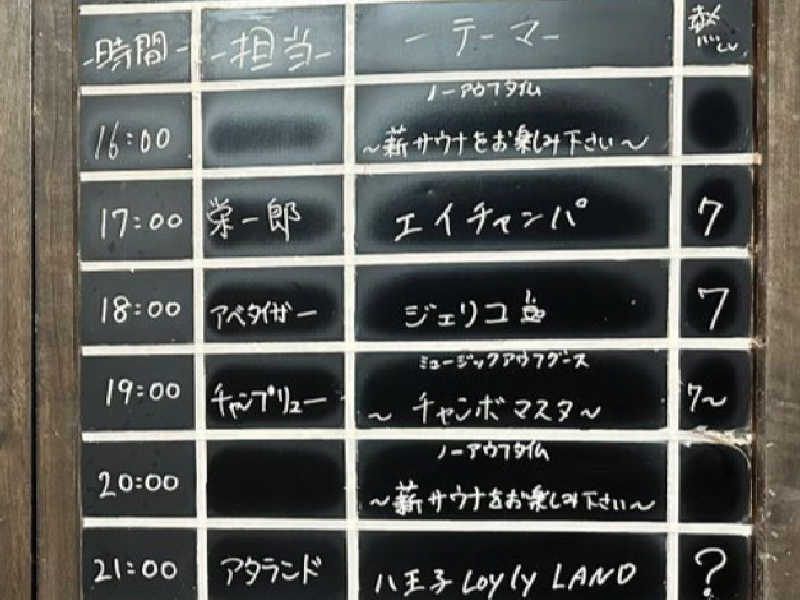 -時間- -担当- -テーマ- 熱Lv.
16:00 ノーアウフタイム
~薪サウナをお楽しみ下さい~
17:00 栄一郎 エイチャンパ 7
18:00 アペタイザー ジェリコ 7
19:00 チャンプリュー ミュージックアウフグース 7~
~チャンボマスタ~
20:00 ノーアウフタイム
~薪サウナをお楽しみ下さい~
21:00 アタランド 八王子 Loyly LAND ?